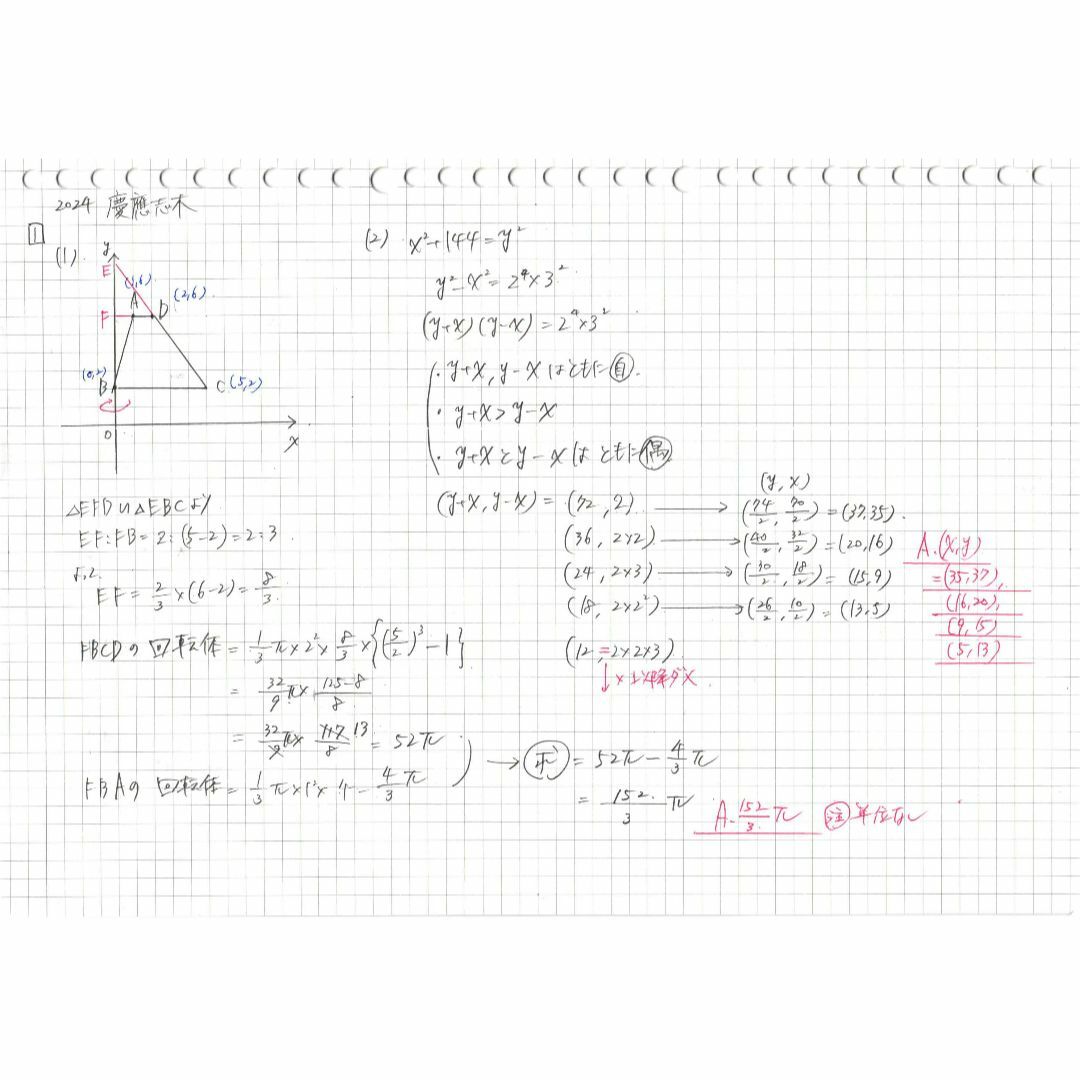 2024 慶應志木
1
(1)
y
E
(1,6)
A
(2,6)
F
D
(0,2)
B
C (5,2)
0
x
△EFD∽△EBCより
EF:FB=2:(5-2)=2:3
よって
EF=2/3×(6-2)=8/3
FBCDの回転体=1/3π×2²×8/3×{(5/2)³-1}
=32/9π×(125-8)/8
=32/9π×117/8 13=52π
FBAの回転体=1/3π×1²×4=4/3π
→(求)=52π-4/3π
=152/3π
A. 152/3π 注 単位なし
(2) x²+144=y²
y²-x²=2⁴×3²
(y+x)(y-x)=2⁴×3²
・y+x, y-xはともに自.
・y+x>y-x
・y+xとy-xはともに偶
(y, x)
(y+x, y-x)=(72, 2)→(74/2, 70/2)=(37,35).
(36, 2×2)→(40/2, 32/2)=(20,16)
(24, 2×3)→(30/2, 18/2)=(15,9)
(18, 2×2²)→(26/2, 10/2)=(13,5)
(12, 2×2×3)
↓×以降ダメ
A.(x,y)
=(35,37),
(16,20),
(9,15)
(5,13)